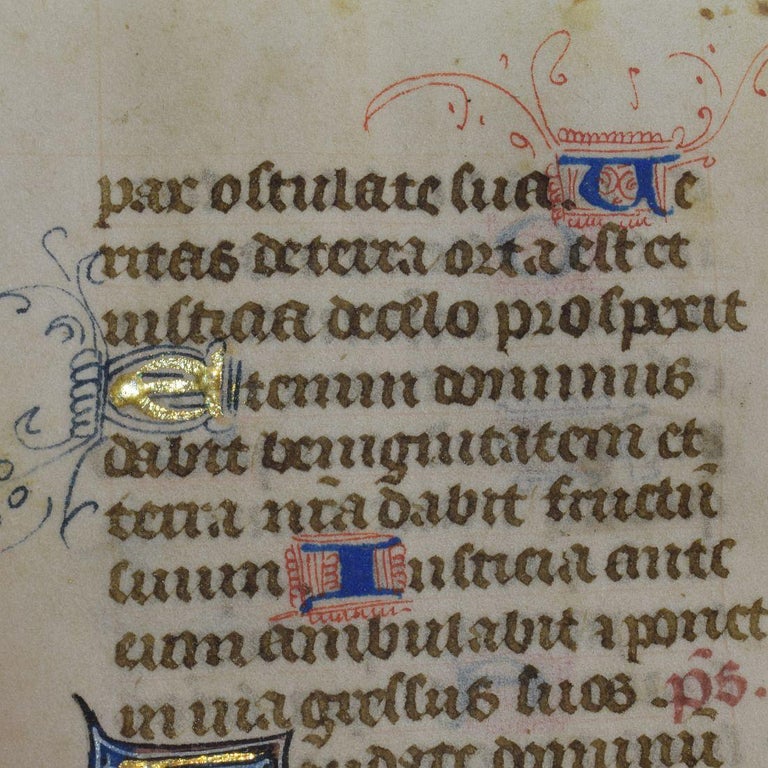 pax osculate sua. Ue
ritas de terra orta est et
iusticia de celo prospexit
Etenim dominus
dabit benignitatem et
terra nr̄a dabit fructū
suum Iusticia ante
eum ambulabit ⁊ ponet
in uia gressus suos. p̄s.
Laudate dominū